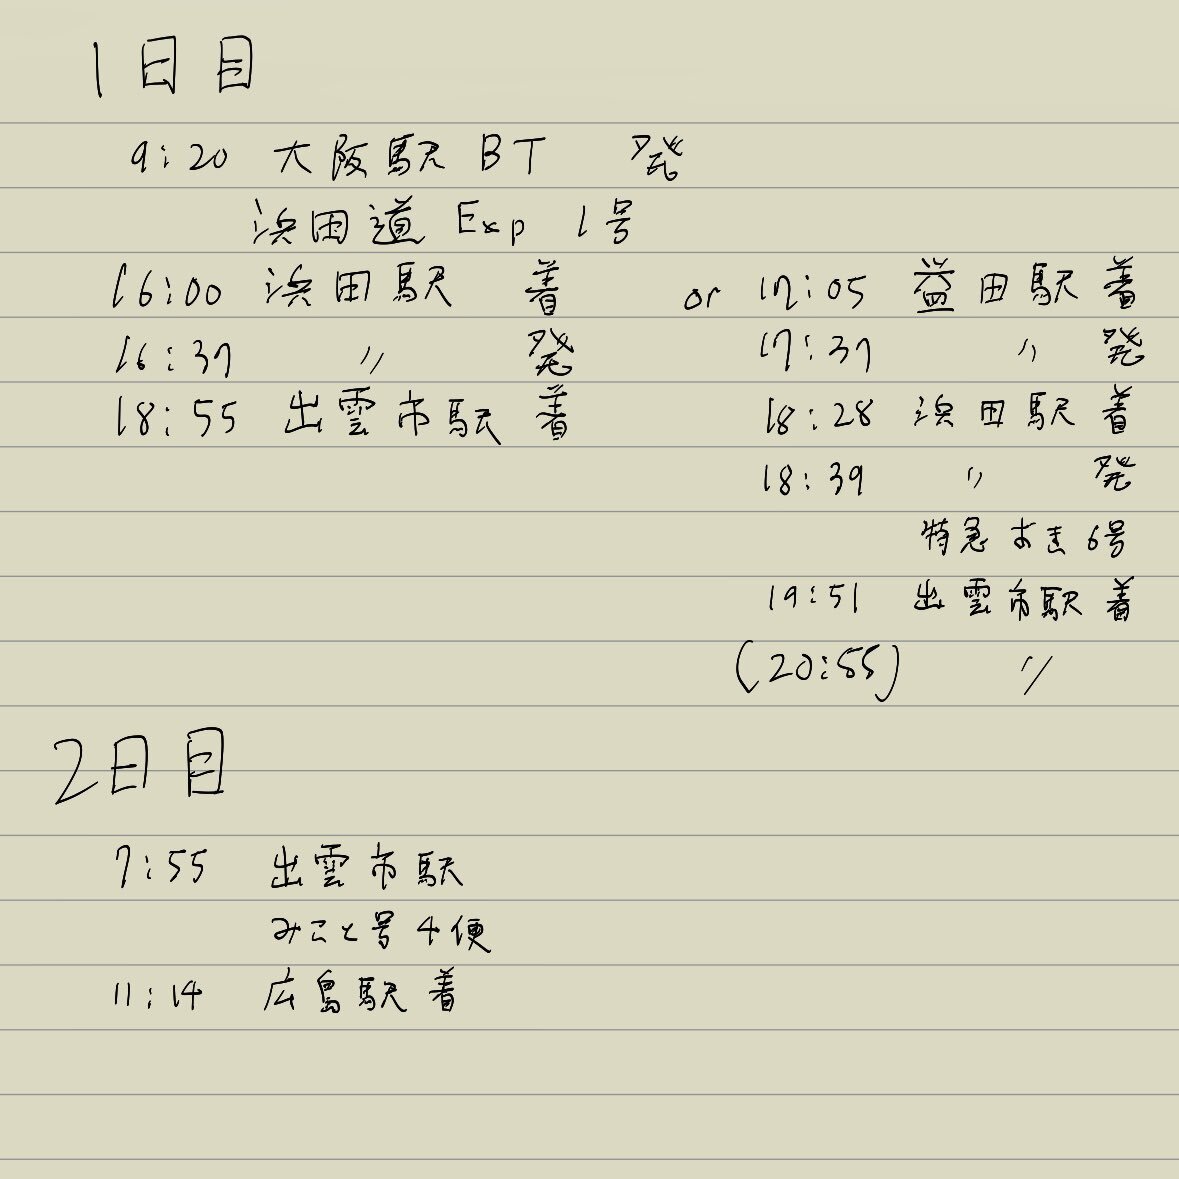 1日目
9:20 大阪駅 BT 発
浜田道 Exp 1号
16:00 浜田駅 着
16:37 〃 発
18:55 出雲市駅 着
or 17:05 益田駅 着
17:37 〃 発
18:28 浜田駅 着
18:39 〃 発
特急 おき 6号
19:51 出雲市駅 着
(20:55) 〃
2日目
7:55 出雲市駅
みこと号 4便
11:14 広島駅 着